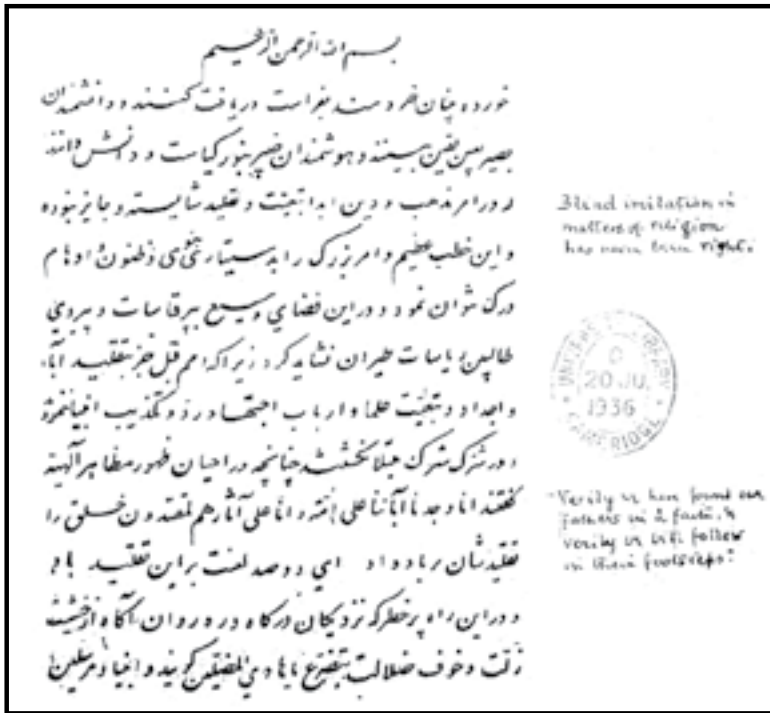 بسم الله الرحمن الرحیم
خورده بینان خردمند بفراست دریافت کنند و دانشمندان
بصیر بعین یقین بینند و هوشمندان خبیر بنور کیاست و دانش دانند
در امر مذهب و دین ابدا تبعیت و تقلید شایسته و جایز نبوده
و این خطب عظیم و امر بزرگ را بدستیاری و ظنون و اوهام
درک نتوان نمود و در این فضای وسیع بپر قاسات و پیروی
طیران نشاید کرد زیرا که امم قبل جز بتقلید آباء
و اجداد و تبعیت علما و ارباب اجتهاد و رد و تکذیب انبیا
در شرک شرک مبتلا نگشتند چنانچه در احیان ظهور مظاهر الهیه
گفتند انا وجدنا آبائنا علی امة و انا علی آثارهم لمقتدون خلق را
تقلیدشان بر باد داد ای دو صد لعنت بر این تقلید باد
و در این راه پر خطر که نزدیکان درگاه و رهروان آگاه از خشیت
زلت و خوف ضلالت بتضرع یا هادی المضلین گویند و انبیاء مرسلین
Blind imitation in
matters of religion
has never been right.
UNIVERSITY LIBRARY
20 JU.
1936
CAMBRIDGE
"Verily we have found our
fathers in a faith, &
verily we will follow
in their footsteps"